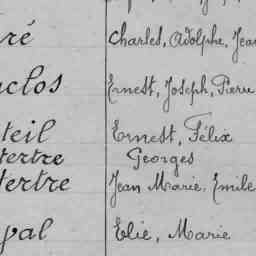 ré Charles, Adolphe, Jean
clos Ernest, Joseph, Pierre
teil Ernest, Félix
tertre Georges
tertre Jean Marie, Emile
pal Elie, Marie